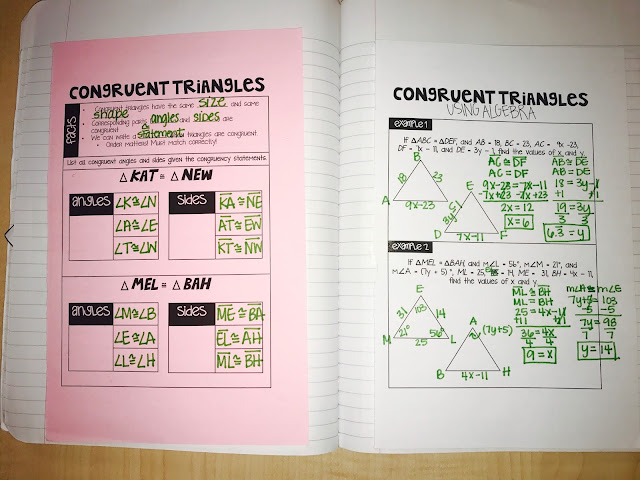 CONGRUENT TRIANGLES
FACTS
• Congruent triangles have the same size and same
shape
• Corresponding pairs angles and sides are
congruent
• We can write a △ statement triangles are congruent.
• Order matters! Must match correctly!
List all congruent angles and sides given the congruency statements.
△ KAT ≅ △ NEW
angles
∠K≅∠N
∠A≅∠E
∠T≅∠W
sides
KA ≅ NE
AT ≅ EW
KT ≅ NW
△ MEL ≅ △ BAH
angles
∠M≅∠B
∠E≅∠A
∠L≅∠H
sides
ME ≅ BA
EL ≅ AH
ML ≅ BH
CONGRUENT TRIANGLES
USING ALGEBRA
example 1
If △ABC ≅ △DEF, and AB = 18, BC = 23, AC = 9x -23,
DF = 7x - 11, and DE = 3y - 1, find the values of x and y.
B
18
23
A
9x-23
E
3y-1
D
7x-11
F
AC ≅ DF
AC = DF
9x-23=7x-11
-7x+23 -7x+23
2x = 12
x=6
AB ≅ DE
AB = DE
18 = 3y-1
+1 +1
19 = 3y
3 3
6.3 = y
example 2
If △MEL ≅ △BAH, and m∠L = 56°, m∠M = 21°, and
m∠A = (7y + 5)°, ML = 25, = 14, ME = 31, BH = 4x - 11,
find the values of x and y.
E
31
103
14
M
21°
56°
L
25
A
(7y+5)
B
4x-11
H
ML ≅ BH
ML = BH
25 = 4x-11
+11 +11
36 = 4x
4 4
9 = x
m∠A = m∠E
7y+5= 103
-5 -5
7y = 98
7 7
y = 14